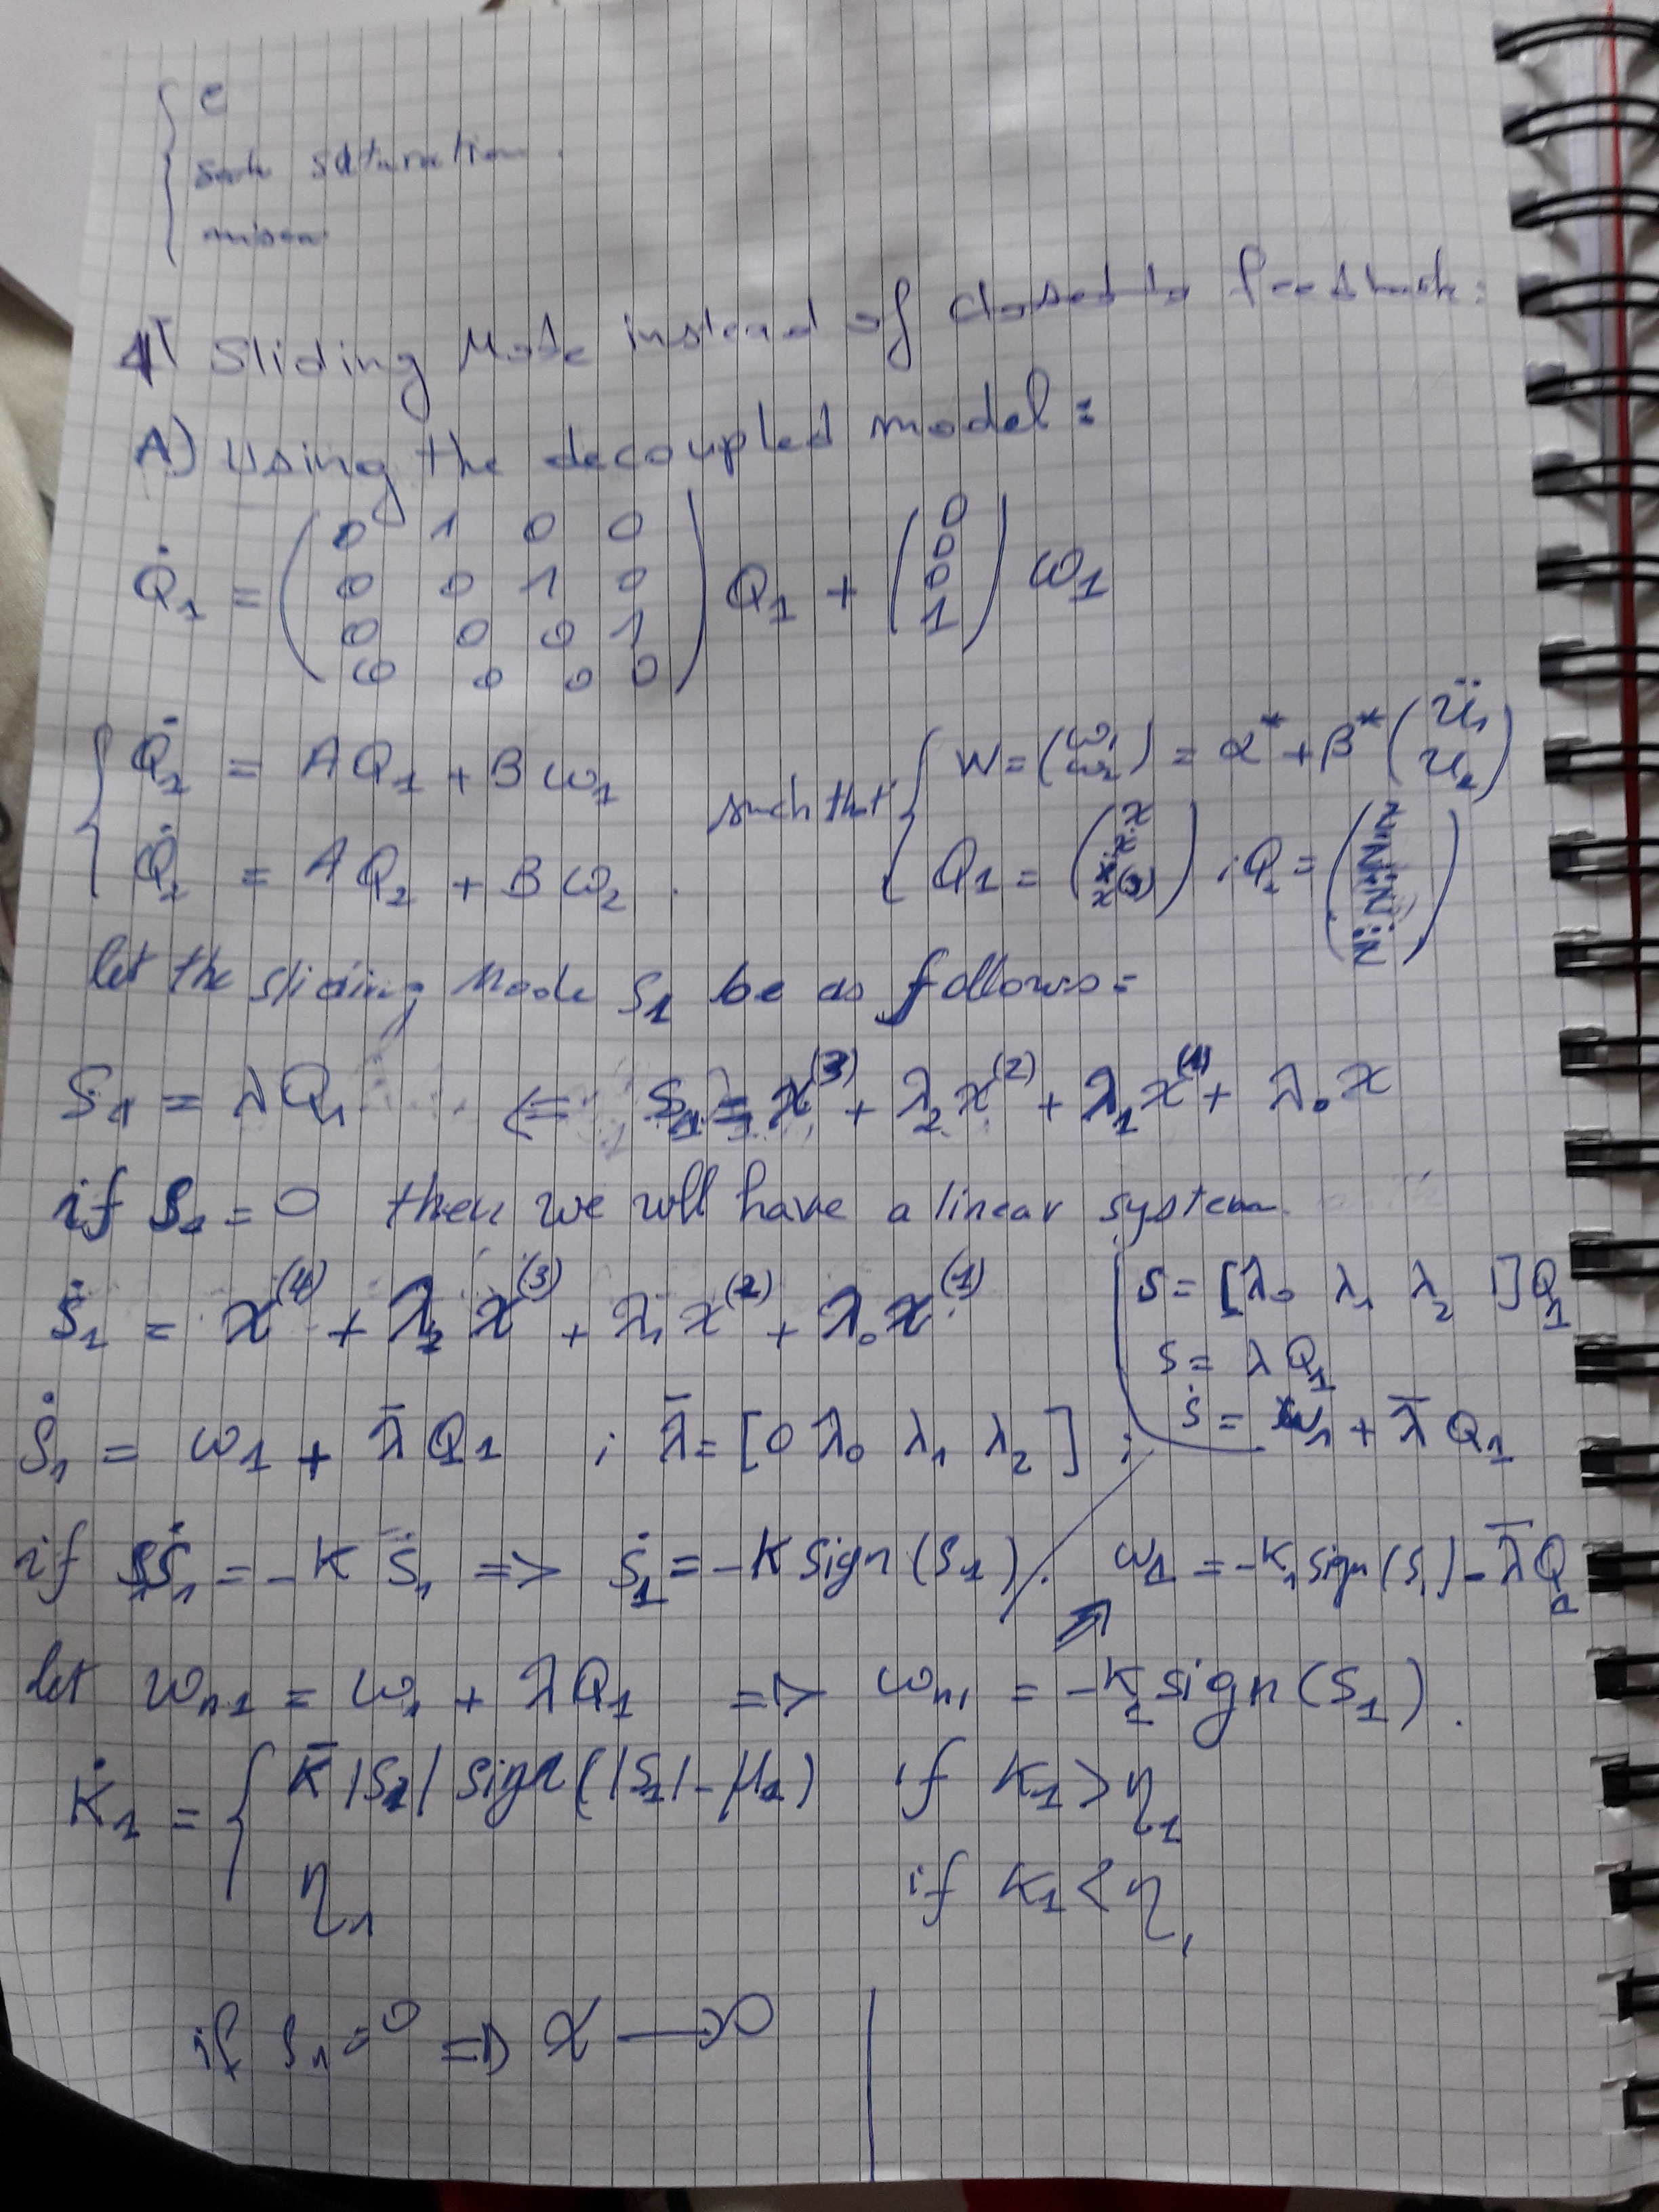 e
saturation.
1) Sliding Mode instead of closed lo feedback:
A) Using the decoupled model:
Q̇₁ = ( 0 1 0 0 ; 0 0 1 0 ; 0 0 0 1 ; 0 0 0 0 ) Q₁ + ( 0 ; 0 ; 0 ; 1 ) ω₁
{ Q̇₁ = A Q₁ + B ω₁ such that { W = (ω₁ ; ω₂) = α* + β* (ü₁ ; u₂)
Q̇₂ = A Q₂ + B ω₂ . Q₁ = ( x ; ẋ ; ẍ ; x⁽³⁾ ) ; Q₂ = ( z ; ż ; z̈ ; z⃛ )
let the sliding Mode S₁ be as follows:
S₁ = λQ₁ <= S₁ = x⁽³⁾ + λ₂ x⁽²⁾ + λ₁ x⁽¹⁾ + λ₀ x
if S₁ = 0 then we will have a linear system.
Ṡ₁ = x⁽⁴⁾ + λ₂ x⁽³⁾ + λ₁ x⁽²⁾ + λ₀ x⁽¹⁾
S = [λ₀ λ₁ λ₂ 1] Q₁
S = λ Q₁
Ṡ = w₁ + λ̄ Q₁
Ṡ₁ = ω₁ + λ̄ Q₁ ; λ̄ = [0 λ₀ λ₁ λ₂] ;
if S₁Ṡ₁ = -K S₁ => Ṡ₁ = -K sign(S₁). ω₁ = -K₁ sign(S₁) - λ̄Q₁
let ωₙ₁ = ω₁ + λQ₁ => ωₙ₁ = -K₁ sign(S₁).
K̇₁ = { K̄ |S₁| sign(|S₁| - μ₁) if K₁ > η₁
η₁ if K₁ < η₁
if S₁ = 0 => x → 0